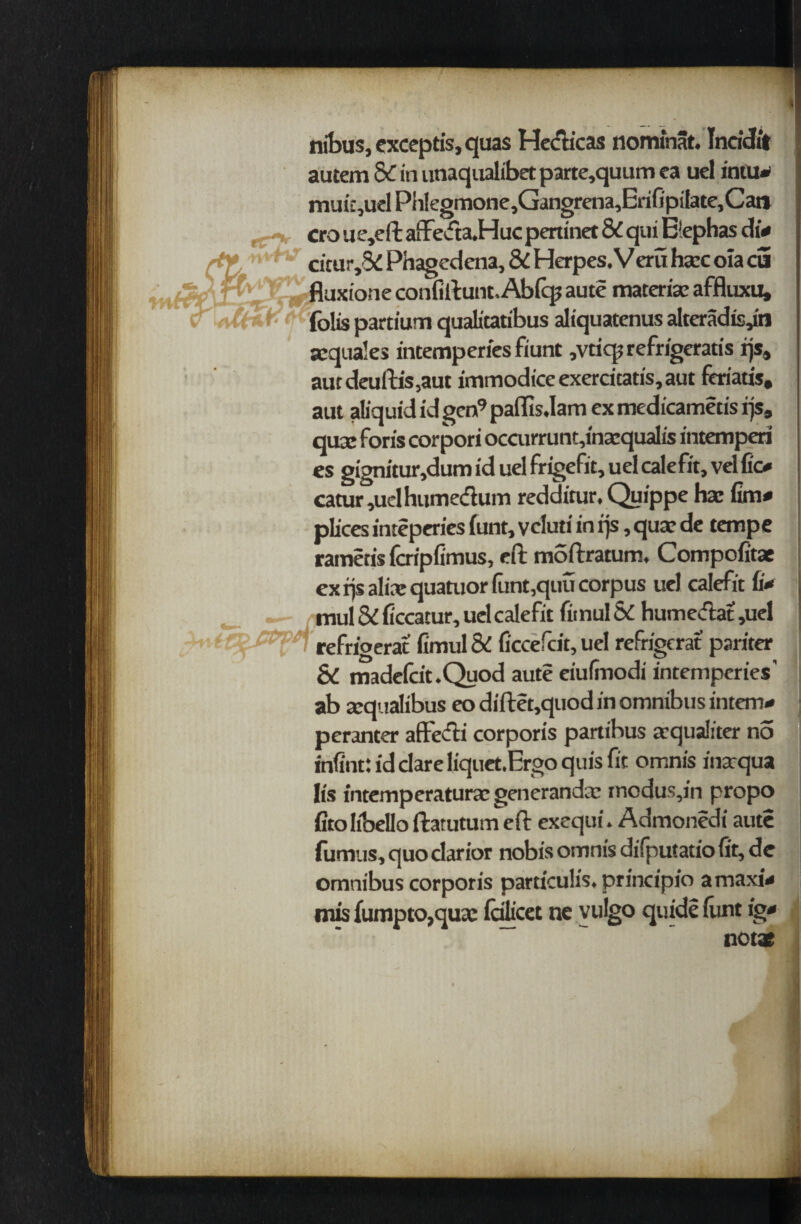 nibus, exceptis, quas Hecticas nominãt. Incidit
autem & in unaqualibet parte, quum ea uel intu-
muit, uel Phlegmone, Gangrena, Erisipilate, Can
cro ue, est affecta. Huc pertinet & qui Elephas di-
citur, & Phagedena, & Herpes. Verũ hæc oĩa cũ
fluxione consistunt. Absq; autẽ materiæ affluxu,
solis partium qualitatibus aliquatenus alterãdis, in
æquales intemperies fiunt, vtiq; refrigeratis ijs,
aut deustis, aut immodice exercitatis, aut feriatis,
aut aliquid id genꝰ passis. Iam ex medicamẽtis ijs,
quæ foris corpori occurrunt, inæqualis intemperi
es gignitur, dum id uel frigefit, uel calefit, vel sic-
catur, uel humectum redditur. Quippe hæ sim-
plices intẽperies sunt, veluti in ijs, quæ de tempe
ramẽtis scripsimus, est mõstratum. Compositæ
ex ijs aliæ quatuor sunt, quũ corpus uel calefit si-
mul & siccatur, uel calefit simul & humectat̃, uel
refrigerat̃ simul & siccescit, uel refrigerat̃ pariter
& madescit. Quod autẽ eiusmodi intemperies
ab æqualibus eo distẽt, quod in omnibus intem-
peranter affecti corporis partibus æqualiter nõ
insint: id clare liquet. Ergo quis fit omnis inæqua
lis intemperaturæ generandæ modus, in propo
sito libello statutum est exequi. Admonẽdi autẽ
sumus, quo clarior nobis omnis disputatio sit, de
omnibus corporis particulis, principio a maxi-
mis sumpto, quæ scilicet ne vulgo quidẽ sunt ig-
notæ